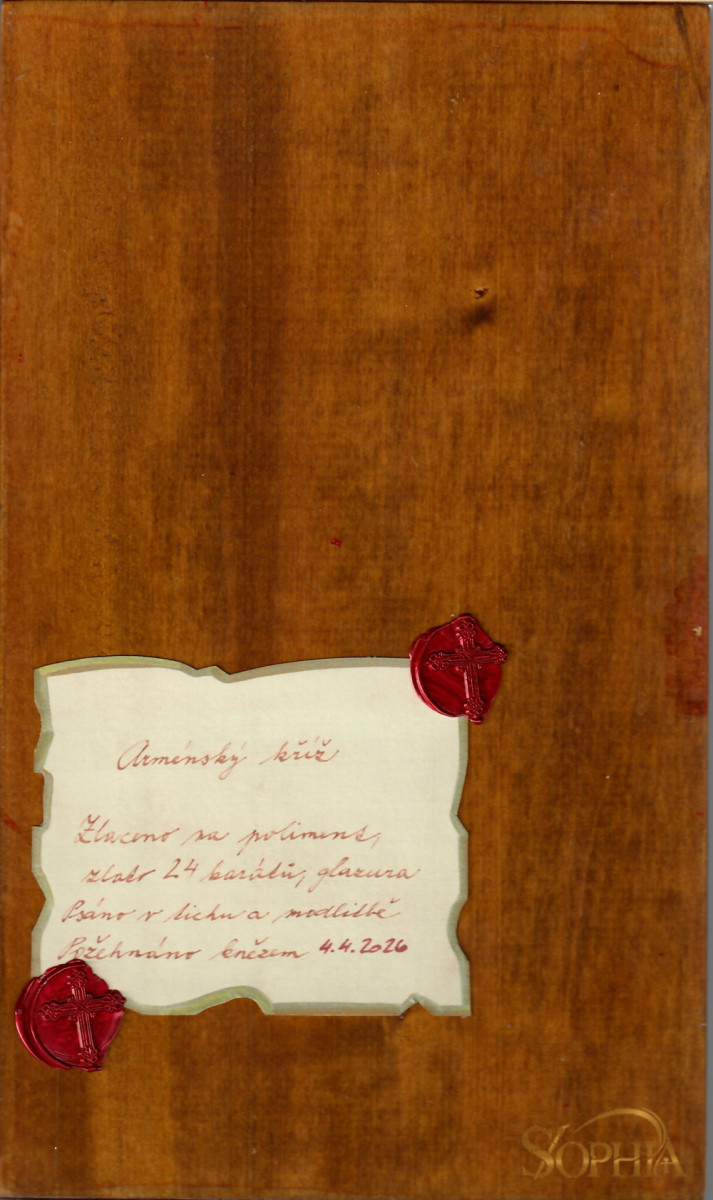 Arménský kříž
Zlaceno na poliment,
zlato 24 karátů, glazura
Psáno v tichu a modlitbě
Požehnáno knězem 4.4.2026
SOPHIA